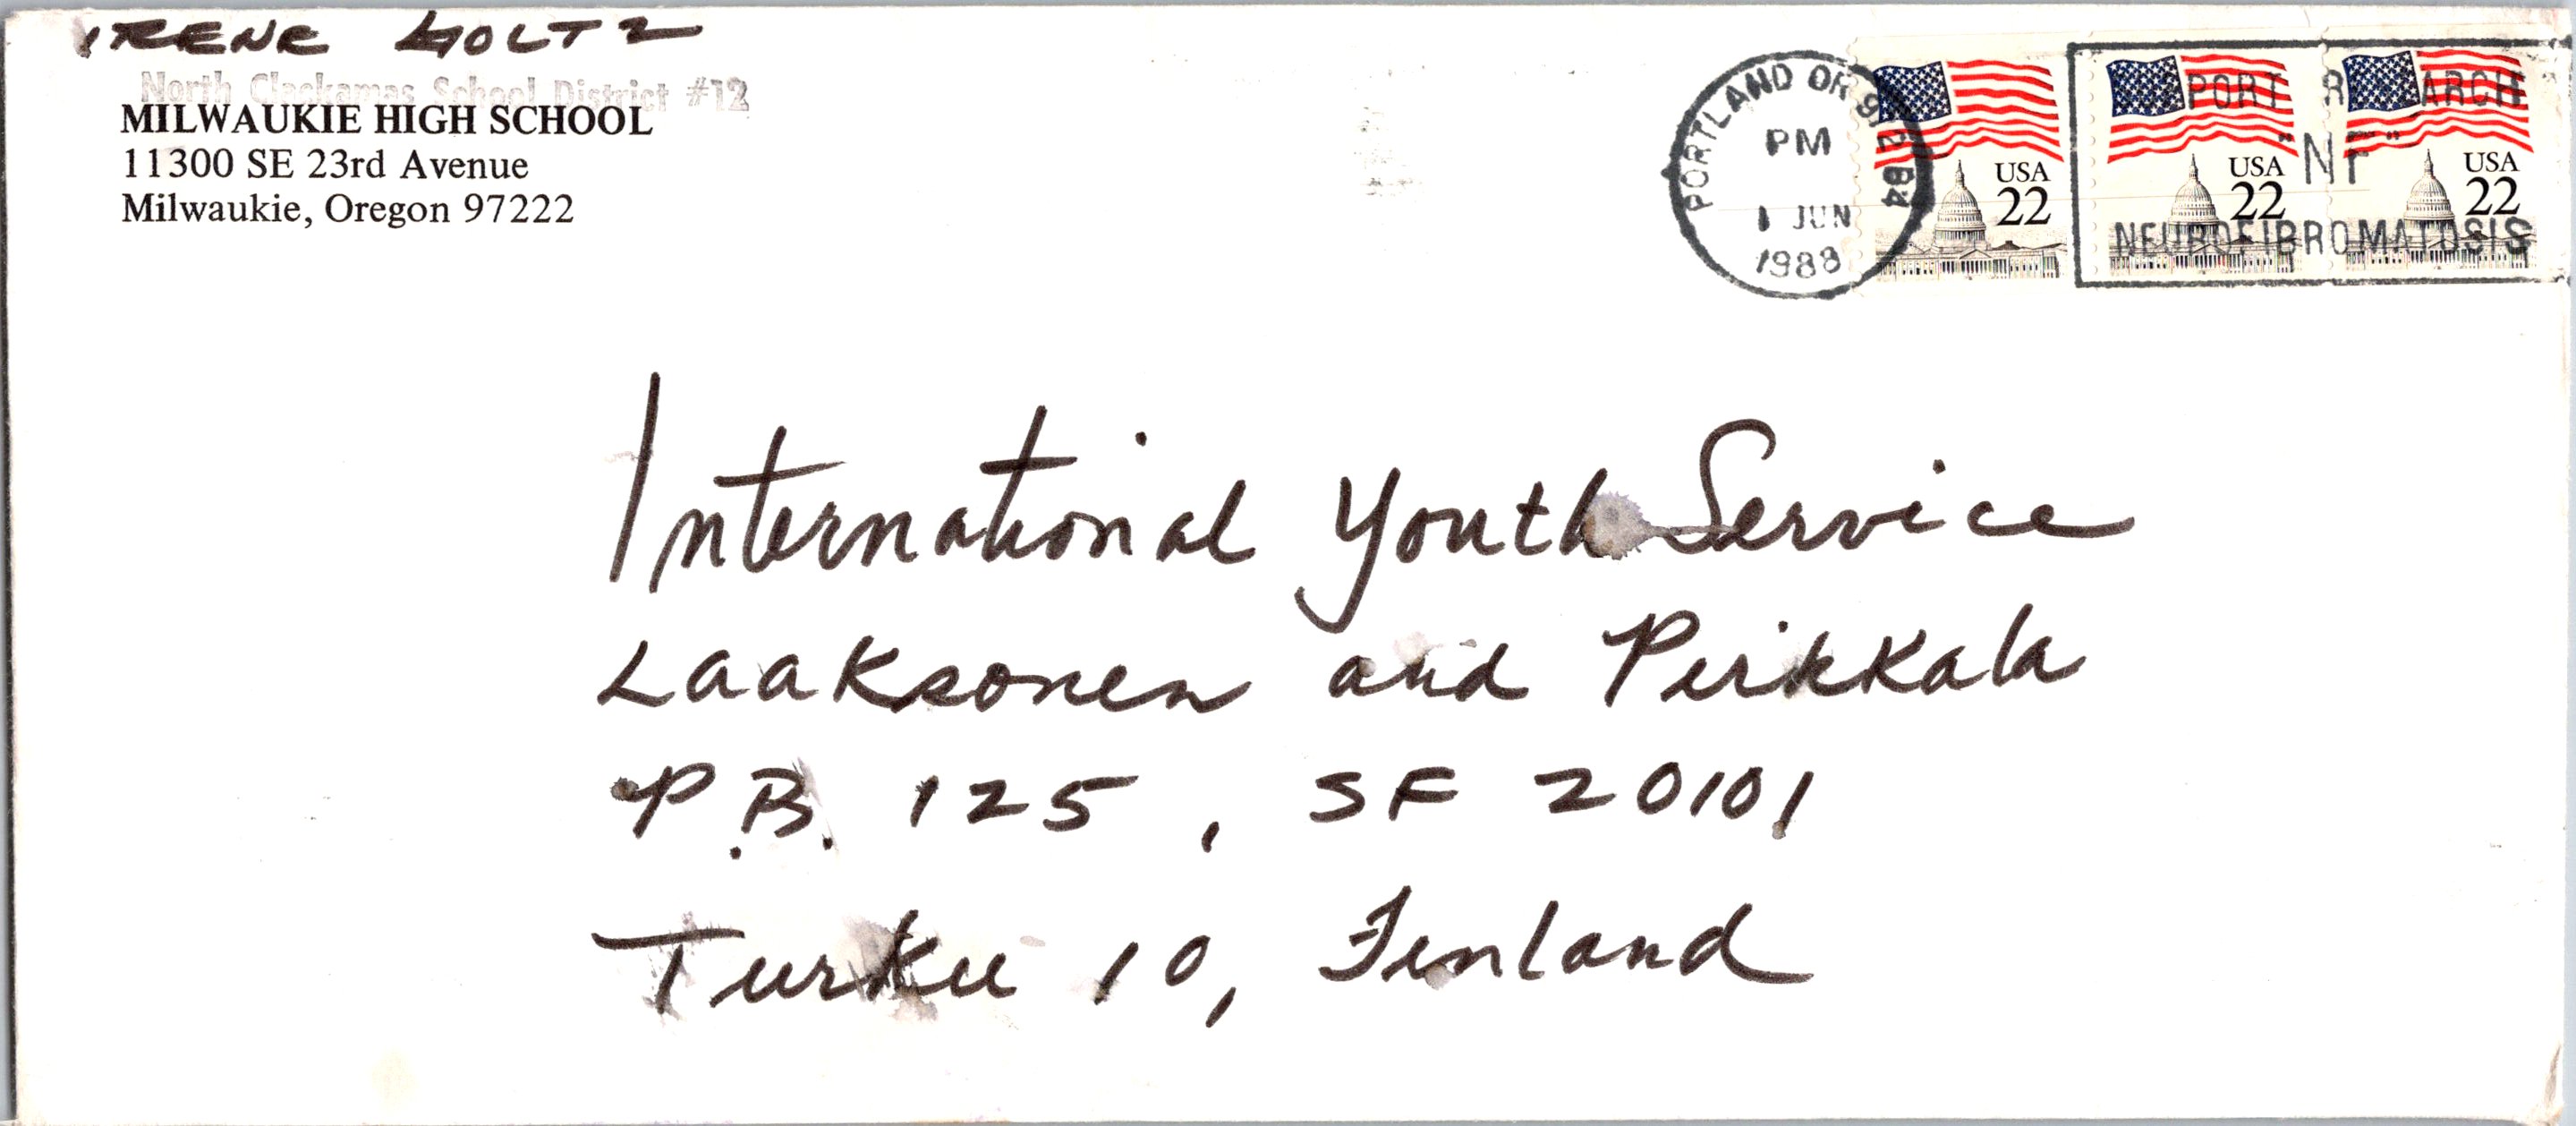 IRENE HOLTZ
North Clackamas School District #12
MILWAUKIE HIGH SCHOOL
11300 SE 23rd Avenue
Milwaukie, Oregon 97222
PORTLAND OR 972 B4
PM
1 JUN
1988
USA
22
USA
22
USA
22
SUPPORT RESEARCH
"NF"
NEUROFIBROMATOSIS
International Youth Service
Laaksonen and Pirkkala
P.B. 125, SF 20101
Turku 10, Finland